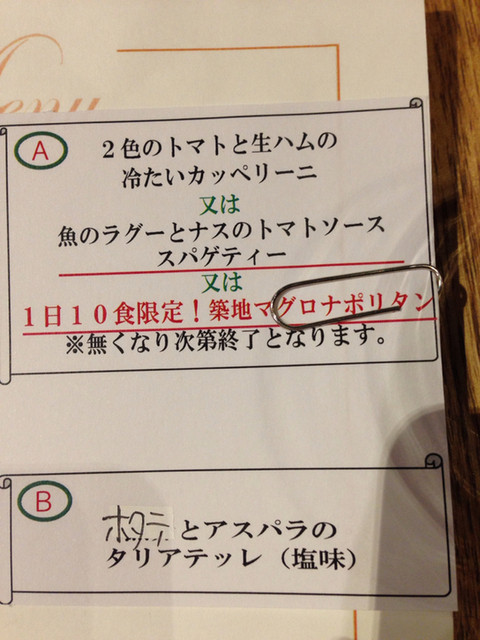 A
2色のトマトと生ハムの
冷たいカッペリーニ
又は
魚のラグーとナスのトマトソース
スパゲティー
又は
1日10食限定！築地マグロナポリタン
※無くなり次第終了となります。
B
ホタテとアスパラの
タリアテッレ（塩味）